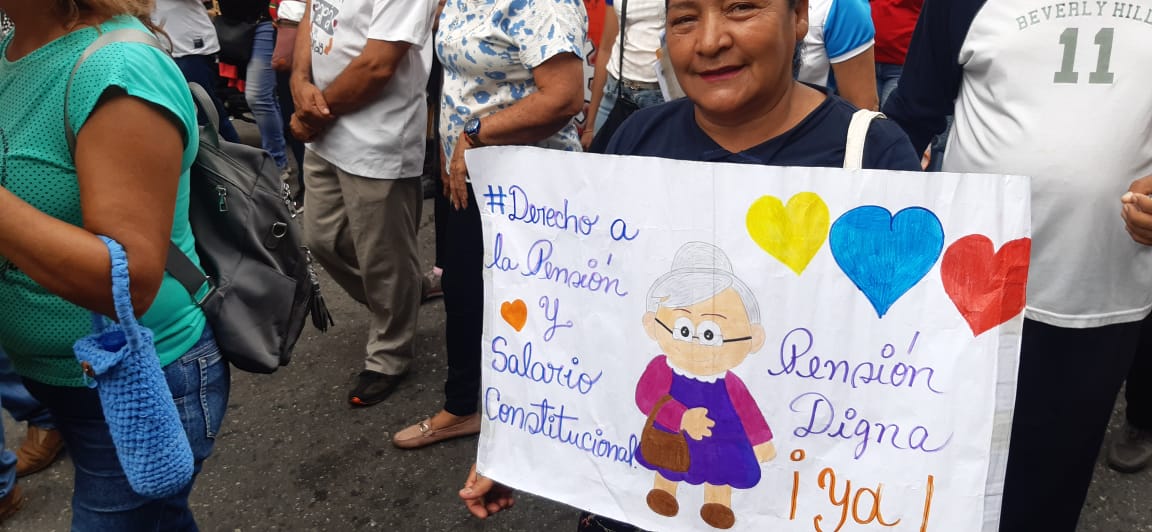 #Derecho a
la Pensión
Y
Salario
Constitucional.
Pensión
Digna
¡Ya!
BEVERLY HILL
11